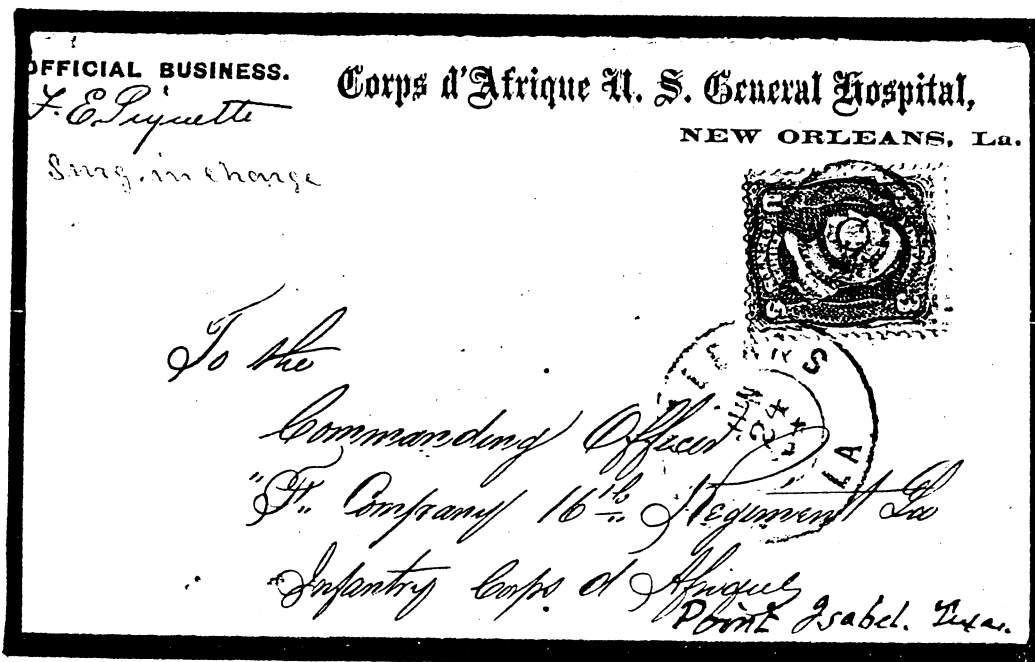 OFFICIAL BUSINESS.
F. E. Piquette
Surg. in charge
Corps d'Afrique U. S. General Hospital,
NEW ORLEANS, La.
LEANS
LA
JUN
24
To the
Commanding Officer
"F" Company 16th Regiment La
Infantry Corps d Afrique
Point Isabel. Texas.